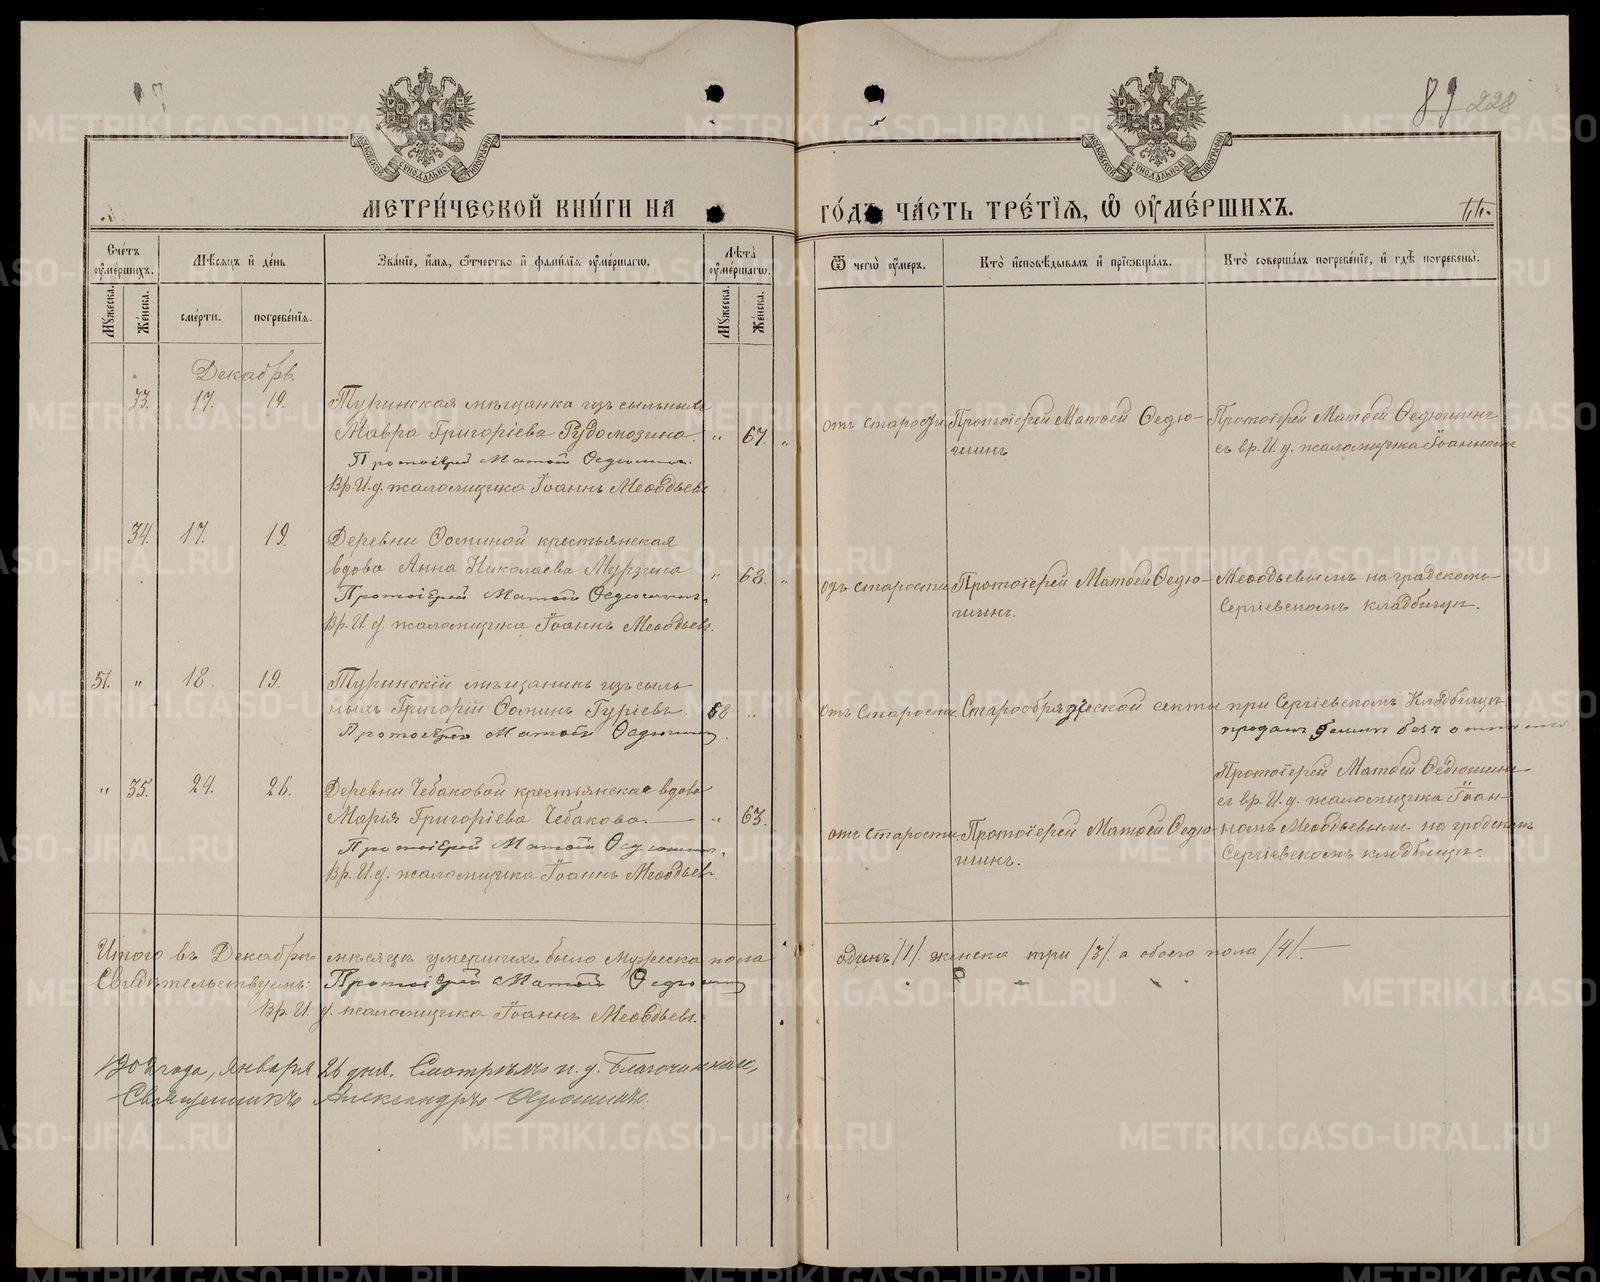 89 228
МЕТРИ́ЧЕСКОЙ КНИ́ГИ НА
ГО́ДЪ, ЧА́СТЬ ТРЕ́ТІЯ, Ѿ ОУМЕ́РШИХЪ.
Сче́тъ оуме́ршихъ.
Му́жеска.
Же́нска.
Мѣ́сяцъ и де́нь
сме́рти.
погребе́нія.
Зва́ніе, и́мя, ѻ́тчество и фами́лія оуме́ршагѡ.
Лѣ́та оуме́ршагѡ.
Му́жеска.
Же́нска.
Ѿ чегѡ̀ оу́меръ.
Кто̀ исповѣ́дывалъ и пріѡбща́лъ.
Кто̀ соверша́лъ погребе́ніе, и гдѣ̀ погребены̀.
Декабрь
33. 17. 19. Туринская мѣщанка изъ сыльныхъ
Мавра Григоріева Рудомозина. „ 67. „
Протоіерей Матѳей Ѳедюшинъ.
Вр. И. д. псаломщика Іоаннъ Меѳодьевъ
отъ старости Протоіерей Матѳей Ѳедю-
шинъ
Протоіерей Матѳей Ѳедюшинъ
съ вр. И. д. псаломщика Іоанномъ
34. 17. 19. Деревни Ѳоминой крестьянская
вдова Анна Николаева Мурзина „ 68. „
Протоіерей Матѳей Ѳедюшинъ.
Вр. И. д. псаломщика Іоаннъ Меѳодьевъ.
отъ старости Протоіерей Матѳей Ѳедю-
шинъ.
Меѳодьевымъ на градскомъ
Сергіевскомъ кладбищѣ.
51. „ 18. 19. Туринскій мѣщанинъ изъ сыль
ныхъ Григорій Ѳоминъ Гуріевъ. 68 „
Протоіерей Матѳей Ѳедюшинъ.
отъ старости Старообрядческой секты при Сергіевскомъ Кладбищѣ
преданъ землѣ безъ
„ 35. 24. 26. Деревни Чебаковой крестьянская вдова
Марія Григоріева Чебакова. „ 63.
Протоіерей Матѳей Ѳедюшинъ.
Вр. И. д. псаломщика Іоаннъ Меѳодьевъ.
отъ старости Протоіерей Матѳей Ѳедю-
шинъ.
Протоіерей Матѳей Ѳедюшинъ
съ вр. И. д. псаломщика Іоан-
номъ Меѳодьевымъ на градскомъ
Сергіевскомъ кладбищѣ
Итого въ Декабрѣ мѣсяцѣ умершихъ было мужеска пола одинъ /1/. женска три /3/. а обоего пола /4/.
Свидѣтельствуемъ: Протоіерей Матѳей Ѳедюшинъ
Вр. И. д. псаломщика Іоаннъ Меѳодьевъ.
года, января 26 дня. Смотрѣлъ и. д. Благочиннаго,
Священникъ Александръ